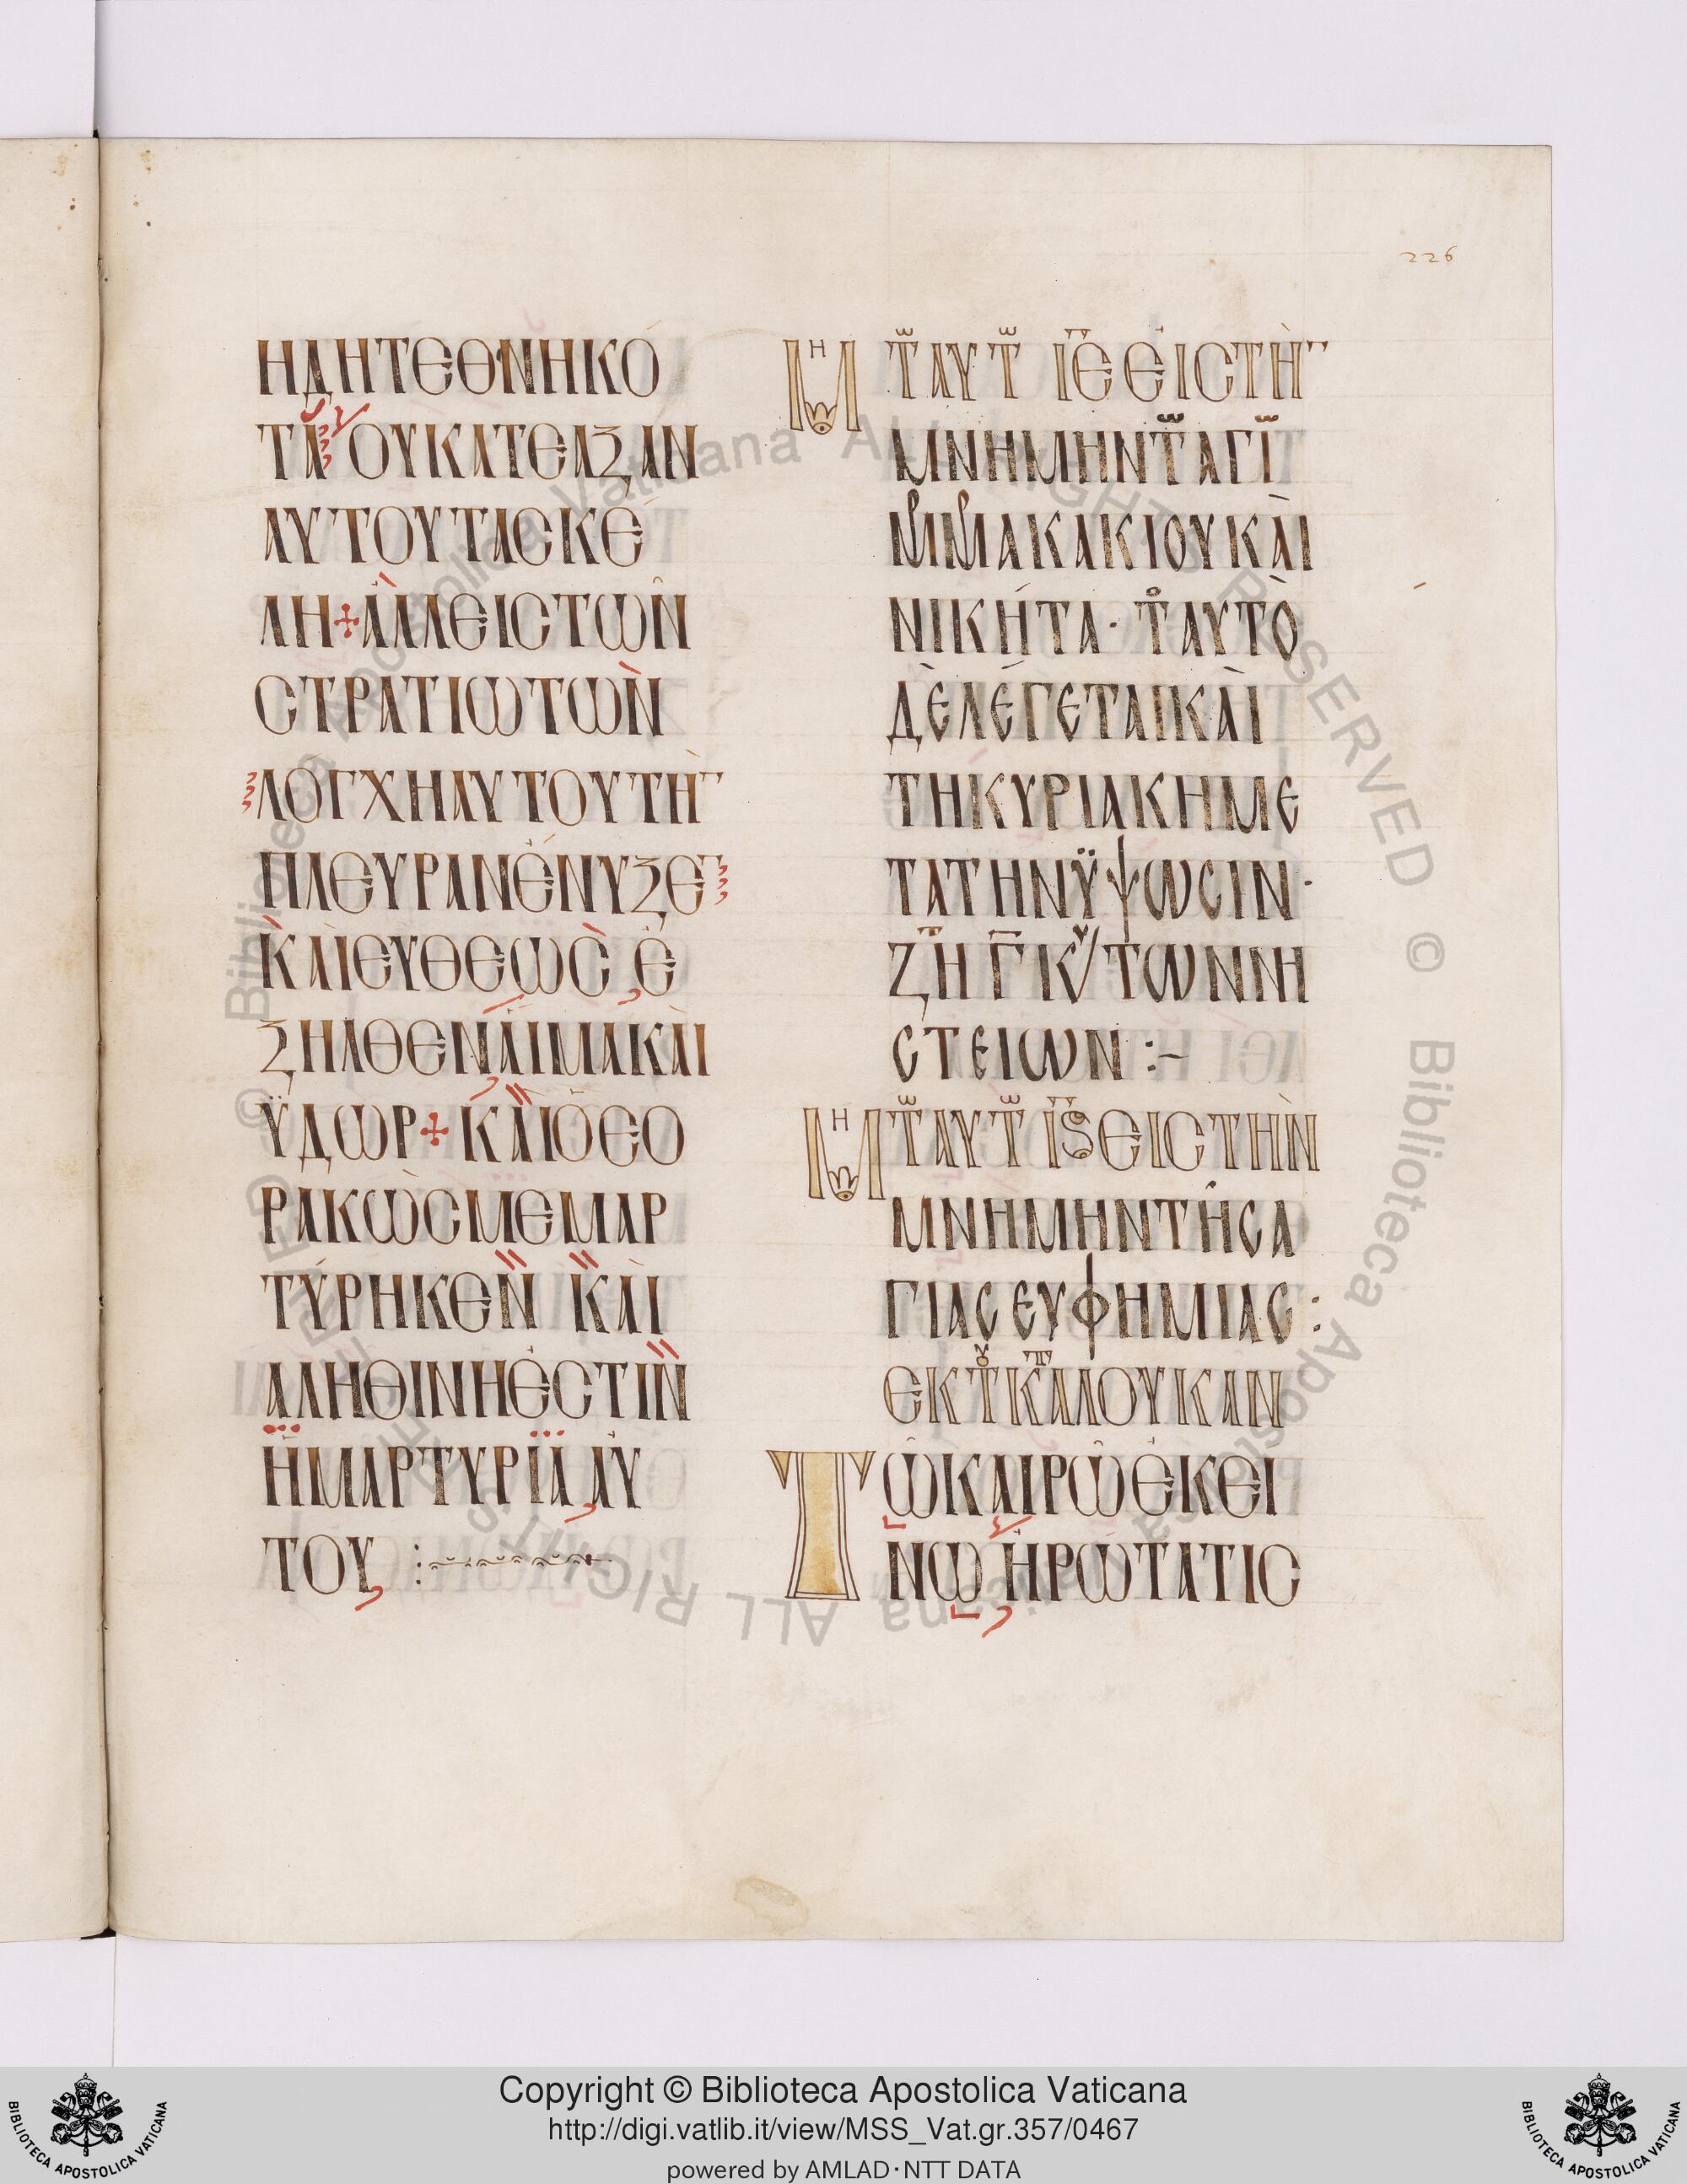 226
ΗΔΗΤΕΘΝΗΚΟ
ΤΑ ΟΥΚΑΤΕΑΞΑΝ
ΑΥΤΟΥΤΑΣΚΕ
ΛΗ + ἈΛΛΕΙΣΤΩΝ
ΣΤΡΑΤΙΩΤΩΝ
ΛΟΓΧΗΑΥΤΟΥΤΗ
ΠΛΕΥΡΑΝΕΝΥΞΕ
ΚΑΙΕΥΘΕΩΣ Ε
ΞΗΛΘΕΝΑΙΜΑΚΑΙ
ΫΔΩΡ + ΚΑΙΟΕΟ
ΡΑΚΩΣΜΕΜΑΡ
ΤΥΡΗΚΕΝ ΚΑΙ
ΑΛΗΘΙΝΗΕΣΤΙΝ
ΗΜΑΡΤΥΡΙΑ ΑΥ
ΤΟΥ :
ΜΗ Τ ΑΥΤ ΙΕ ΕΙΣΤΗ
ΜΝΗΜΗΝΤΑΓΙ
ΜΜΑΚΑΚΙΟΥΚΑΙ
ΝΙΚΗΤΑ · ΤΑΥΤΟ
ΔΕΛΕΓΕΤΑΙΚΑΙ
ΤΗΚΥΡΙΑΚΗΜΕ
ΤΑΤΗΝΫΨΩΣΙΝ ·
ΖΗ Γ ΚΥ ΤΩΝΝΗ
ΣΤΕΙΩΝ :~
ΜΗ Τ ΑΥΤ ΙϚ ΕΙΣΤΗΝ
ΜΝΗΜΗΝΤΗΣΑ
ΓΙΑΣΕΥΦΗΜΙΑΣ :
ΕΚ Τ ΚΑΤΑ ΛΟΥΚΑΝ
ΤΩΚΑΙΡΩΕΚΕΙ
ΝΩ ΗΡΩΤΑΤΙΣ
Copyright © Biblioteca Apostolica Vaticana
http://digi.vatlib.it/view/MSS_Vat.gr.357/0467
powered by AMLAD · NTT DATA
BIBLIOTECA APOSTOLICA VATICANA
BIBLIOTECA APOSTOLICA VATICANA
© Biblioteca Apostolica Vaticana ALL RIGHTS RESERVED © Biblioteca Apostolica Vaticana ALL RIGHTS RESERVED